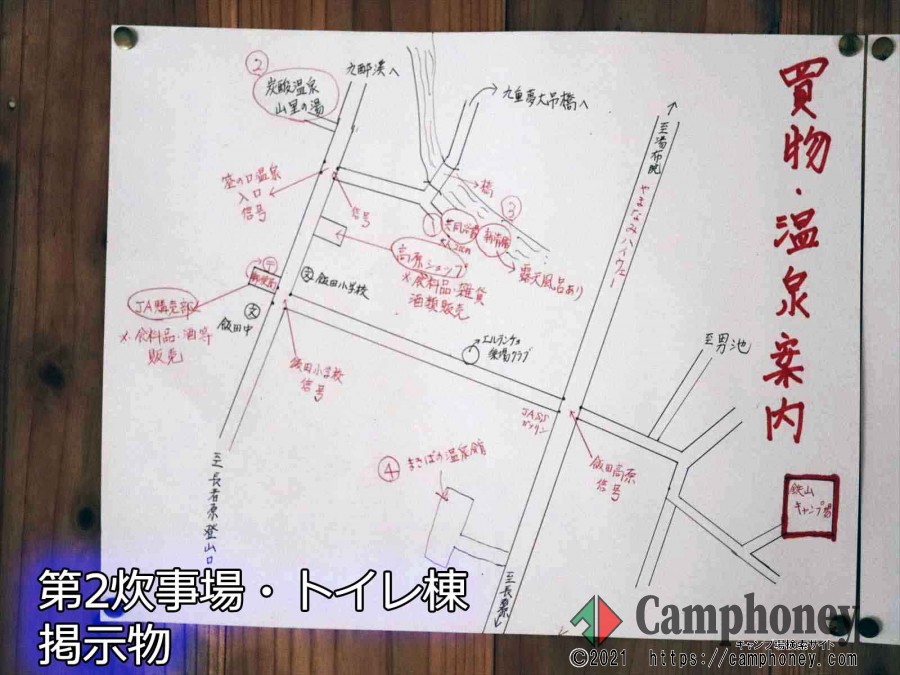 買物・温泉案内
②
炭酸温泉
山里の湯
九酔渓へ
九重夢大吊橋へ
至湯布院
やまなみハイウェー
筌の口温泉
入口
信号
信号
橋
①
共同浴場
③
新清館
露天風呂あり
高原ショップ
※食料品・雑貨
酒類販売
〒
郵便局
JA購売部
※食料品・酒等
販売
文 飯田小学校
文
飯田中
飯田小学校
信号
エルランチョ
乗馬クラブ
至男池
JASS
ガソリン
飯田高原
信号
④ まきばの温泉館
鉄山
キャンプ場
至長者原登山口
至長者原
第2炊事場・トイレ棟
掲示物
Camphoney
キャンプ場検索サイト
©2021 https://camphoney.com/